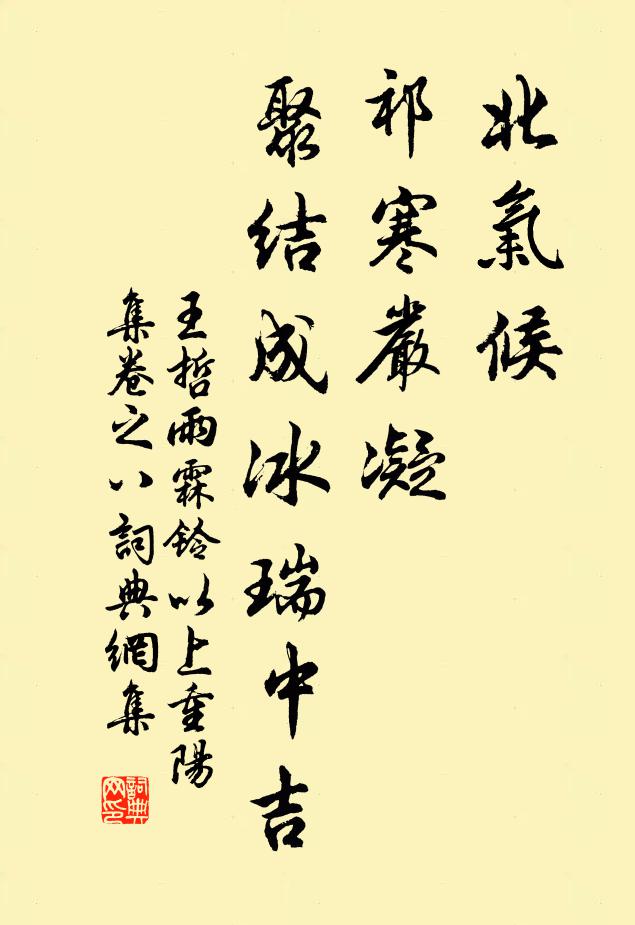 北氣候
祁寒嚴凝
聚結成冰瑞中吉
王哲雨霖鈴以上重陽
集卷之八詞典網集
詞典
网印